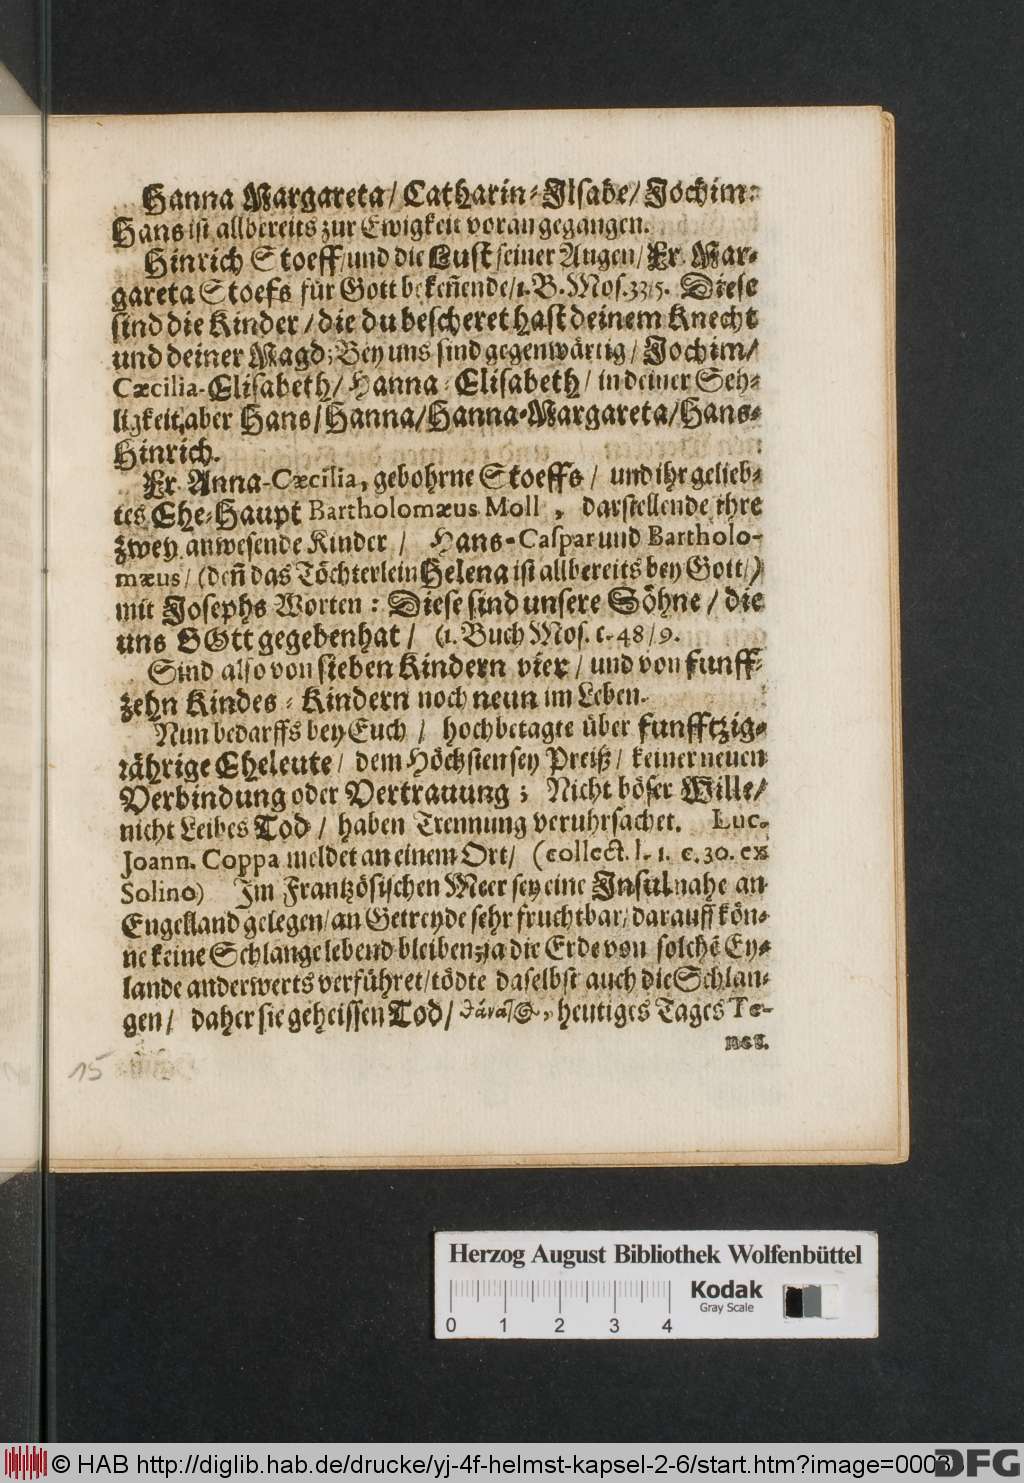 Hanna Margareta/ Catharin-Ilsabe/ Jochim:
Hans ist allbereits zur Ewigkeit voran gegangen.
Hinrich Stoeff/und die Lust seiner Augen/ Fr. Mar-
gareta Stoefs für Gott bekeñende/1. B. Mos. 33/5. Diese
sind die Kinder/ die du bescheret hast deinem Knecht
und deiner Magd; Bey uns sind gegenwärtig/ Jochim/
Cæcilia-Elisabeth/ Hanna-Elisabeth/ in deiner Sey-
ligkeit aber Hans/ Hanna/ Hanna-Margareta/ Hans-
Hinrich.
Fr. Anna-Cæcilia, gebohrne Stoeffs/ und ihr gelieb-
tes Ehe-Haupt Bartholomæus Moll, darstellende ihre
zwey anwesende Kinder/ Hans-Caspar und Bartholo-
mæus/ (deñ das Töchterlein Helena ist allbereits bey Gott/)
mit Josephs Worten: Diese sind unsere Söhne/ die
uns GOtt gegeben hat/ (1. Buch Mos. c. 48/9.
Sind also von sieben Kindern vier/ und von funff-
zehn Kindes-Kindern noch neun im Leben.
Nun bedarffs bey Euch/ hochbetagte über funfftzig-
jährige Eheleute/ dem Höchsten sey Preiß/ keiner neuen
Verbindung oder Vertrauung; Nicht böser Wille/
nicht Leibes Tod/ haben Trennung veruhrsachet. Luc.
Joann. Coppa meldet an einem Ort/ (collect. l. 1. c. 30. ex
Solino) Im Frantzösischen Meer sey eine Insul nahe an
Engelland gelegen/ an Getreyde sehr fruchtbar/ darauff kön-
ne keine Schlange lebend bleiben; ja die Erde von solchẽ Ey-
lande anderwerts verführet/ tödte daselbst auch die Schlan-
gen/ daher sie geheissen Tod/ θάνατος, heutiges Tages Te-
net.
15
Herzog August Bibliothek Wolfenbüttel
Kodak
Gray Scale
0 1 2 3 4
© HAB http://diglib.hab.de/drucke/yj-4f-helmst-kapsel-2-6/start.htm?image=0003
DFG